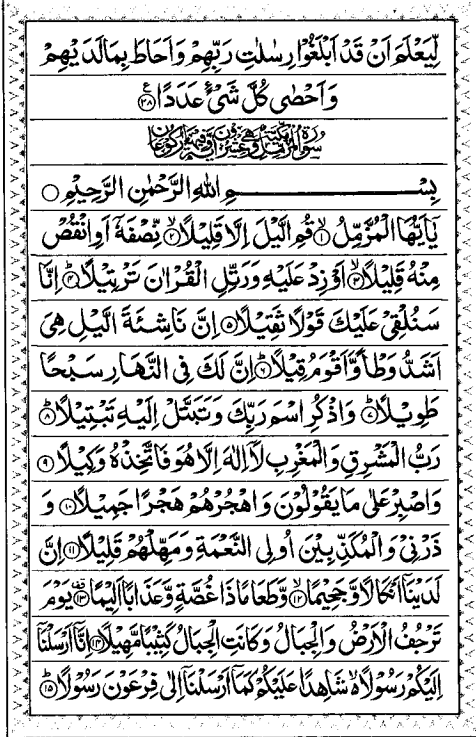 لِّيَعْلَمَ اَنْ قَدْ اَبْلَغُوْا رِسٰلٰتِ رَبِّهِمْ وَاَحَاطَ بِمَا لَدَيْهِمْ
وَاَحْصٰى كُلَّ شَىْءٍ عَدَدًا ﴿٢٨﴾ ع
سورة المزمل مكية وهي عشرون آية وفيها ركوعان
بِسْــــــــمِ اللهِ الرَّحْمٰنِ الرَّحِيْمِ ○
يٰۤاَيُّهَا الْمُزَّمِّلُ ﴿١﴾ قُمِ الَّيْلَ اِلَّا قَلِيْلًا ﴿٢﴾ نِّصْفَهٗۤ اَوِ انْقُصْ
مِنْهُ قَلِيْلًا ﴿٣﴾ اَوْ زِدْ عَلَيْهِ وَرَتِّلِ الْقُرْاٰنَ تَرْتِيْلًا ﴿٤﴾ اِنَّا
سَنُلْقِىْ عَلَيْكَ قَوْلًا ثَقِيْلًا ﴿٥﴾ اِنَّ نَاشِئَةَ الَّيْلِ هِىَ
اَشَدُّ وَطْاً وَّاَقْوَمُ قِيْلًا ﴿٦﴾ اِنَّ لَكَ فِى النَّهَارِ سَبْحًا
طَوِيْلًا ﴿٧﴾ وَاذْكُرِ اسْمَ رَبِّكَ وَتَبَتَّلْ اِلَيْهِ تَبْتِيْلًا ﴿٨﴾
رَبُّ الْمَشْرِقِ وَالْمَغْرِبِ لَاۤ اِلٰهَ اِلَّا هُوَ فَاتَّخِذْهُ وَكِيْلًا ﴿٩﴾
وَاصْبِرْ عَلٰى مَا يَقُوْلُوْنَ وَاهْجُرْهُمْ هَجْرًا جَمِيْلًا ﴿١٠﴾ وَ
ذَرْنِىْ وَالْمُكَذِّبِيْنَ اُولِى النَّعْمَةِ وَمَهِّلْهُمْ قَلِيْلًا ﴿١١﴾ اِنَّ
لَدَيْنَاۤ اَنْكَالًا وَّجَحِيْمًا ﴿١٢﴾ وَّطَعَامًا ذَا غُصَّةٍ وَّعَذَابًا اَلِيْمًا ﴿١٣﴾ يَوْمَ
تَرْجُفُ الْاَرْضُ وَالْجِبَالُ وَكَانَتِ الْجِبَالُ كَثِيْبًا مَّهِيْلًا ﴿١٤﴾ اِنَّاۤ اَرْسَلْنَاۤ
اِلَيْكُمْ رَسُوْلًا ۙ شَاهِدًا عَلَيْكُمْ كَمَاۤ اَرْسَلْنَاۤ اِلٰى فِرْعَوْنَ رَسُوْلًا ﴿١٥﴾